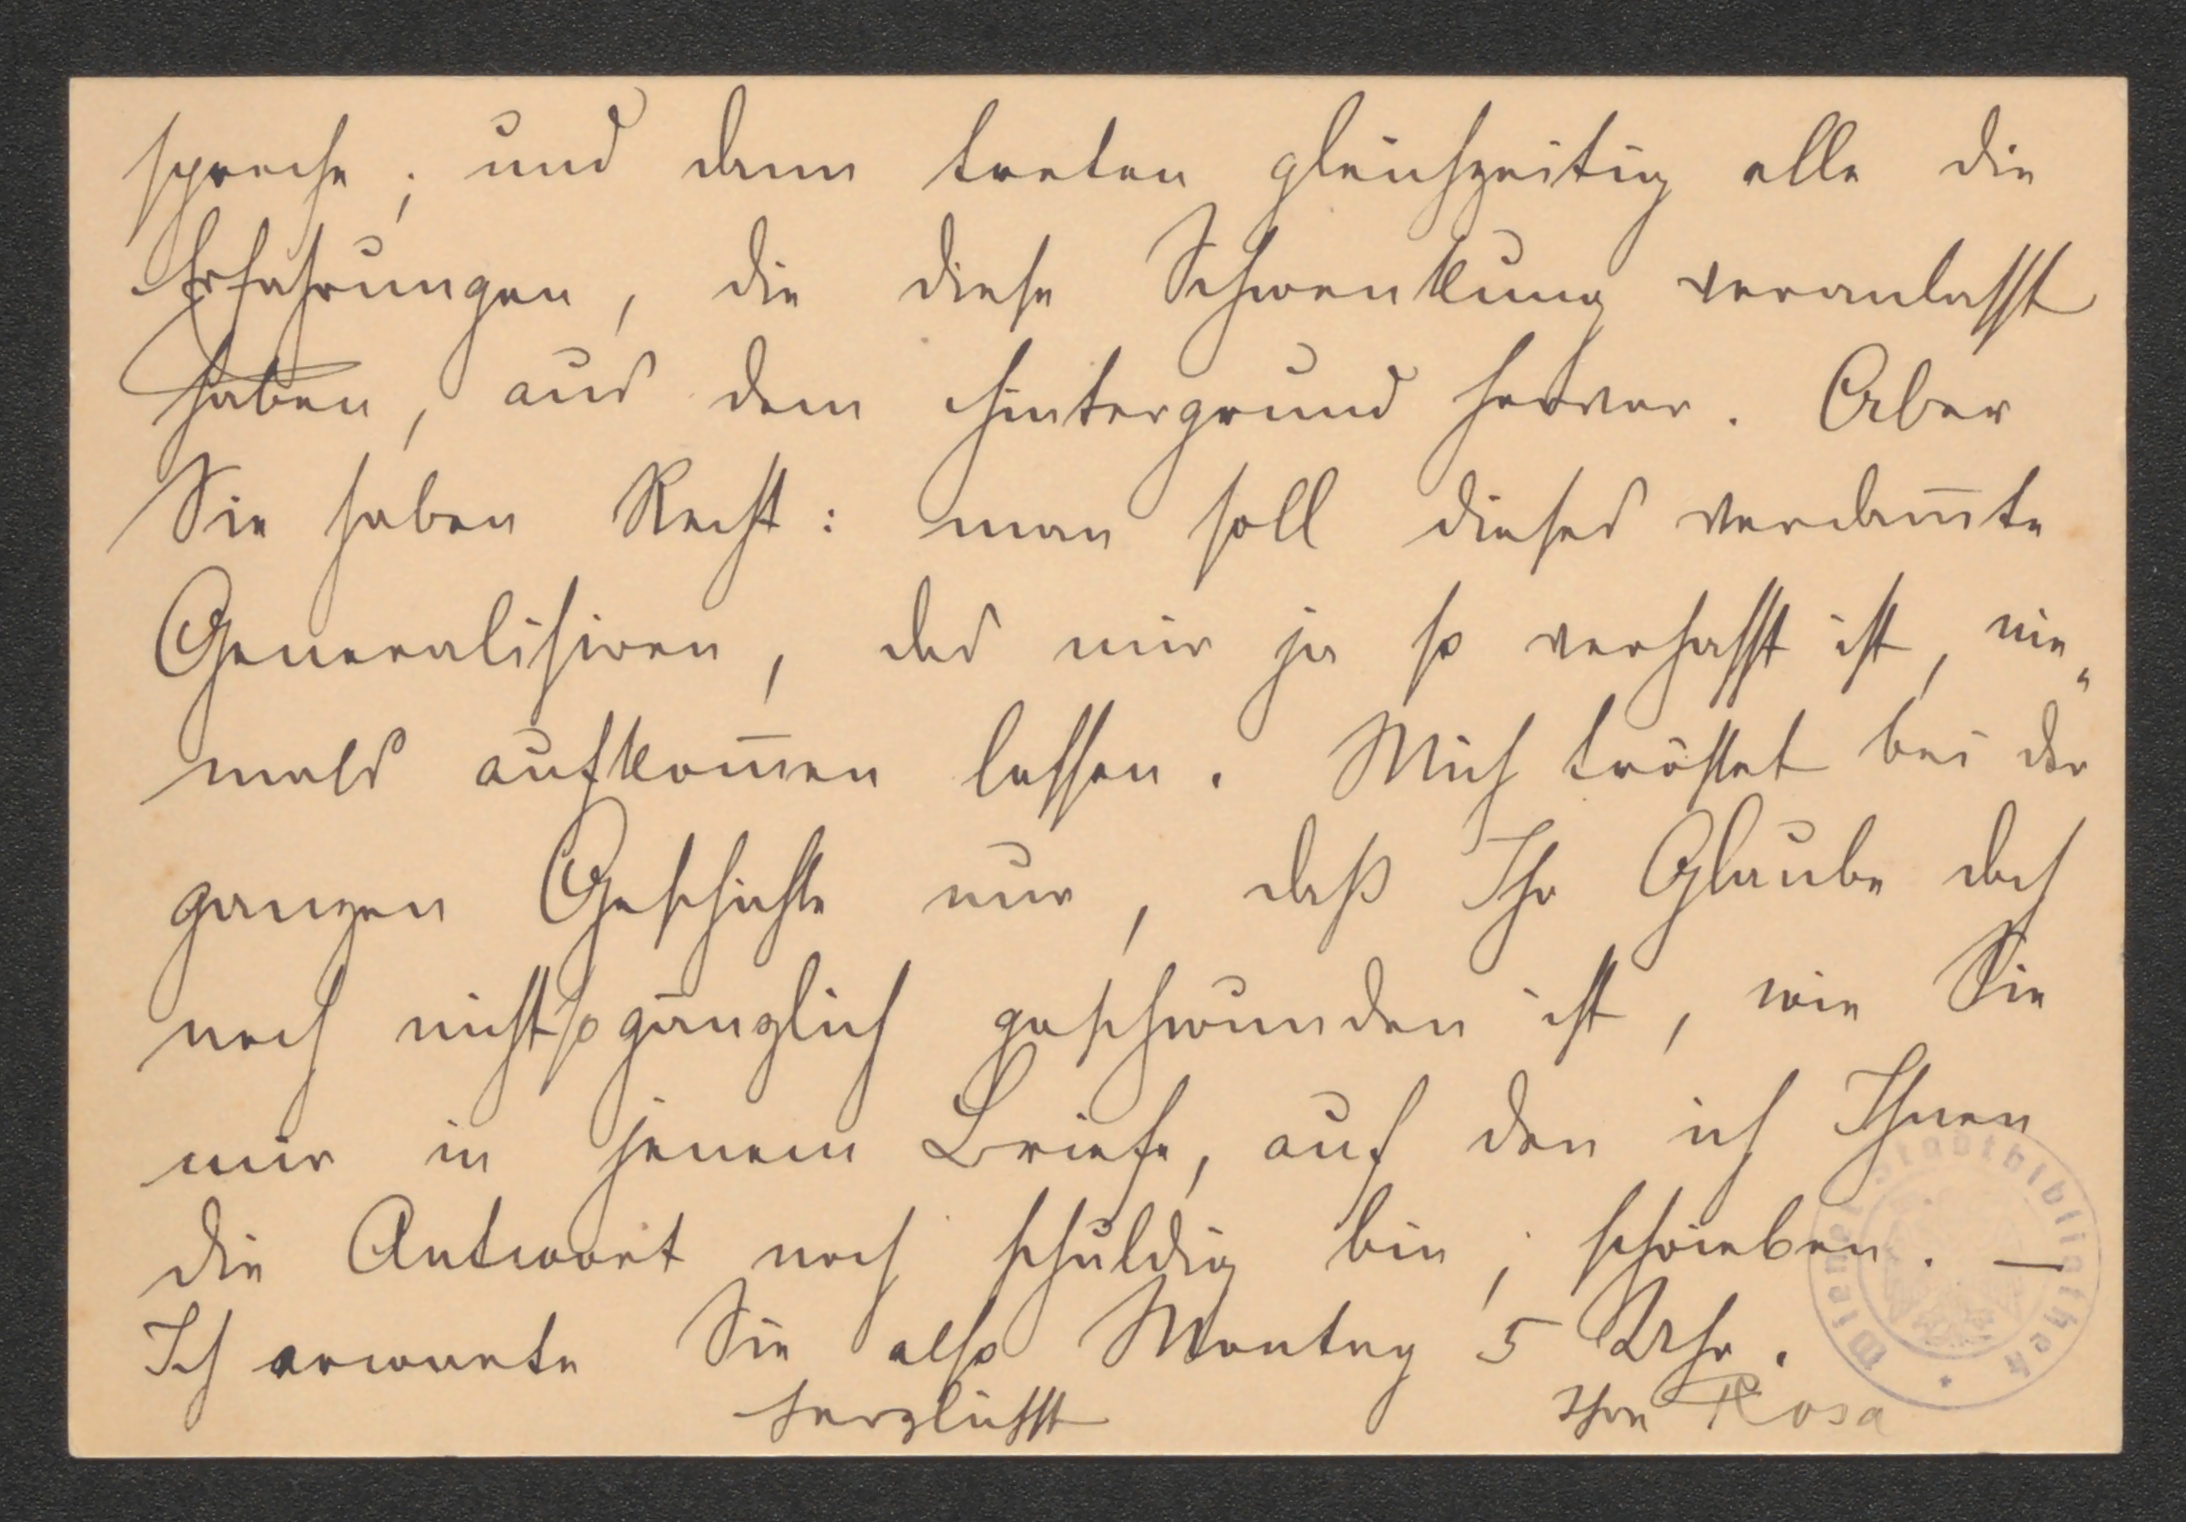 spreche; und dann treten gleichzeitig alle die
Erfahrungen, die diese Schwenkung veranlasst
haben, aus dem Hintergrund hervor. Aber
Sie haben Recht: man soll dieses verdam̅te
Generalisiren, das mir ja so verhasst ist, nie„
mals aufkom̅en lassen. Mich tröstet bei der
ganzen Geschichte nur, daß Ihr Glaube doch
noch nicht so gänzlich geschwunden ist, wie Sie
mir in jenem Briefe, auf den ich Ihnen
die Antwort noch schuldig bin, schrieben. —
Ich erwarte Sie also Montag 5 Uhr.
Herzlichst Ihre Rosa
Wiener Stadtbibliothek